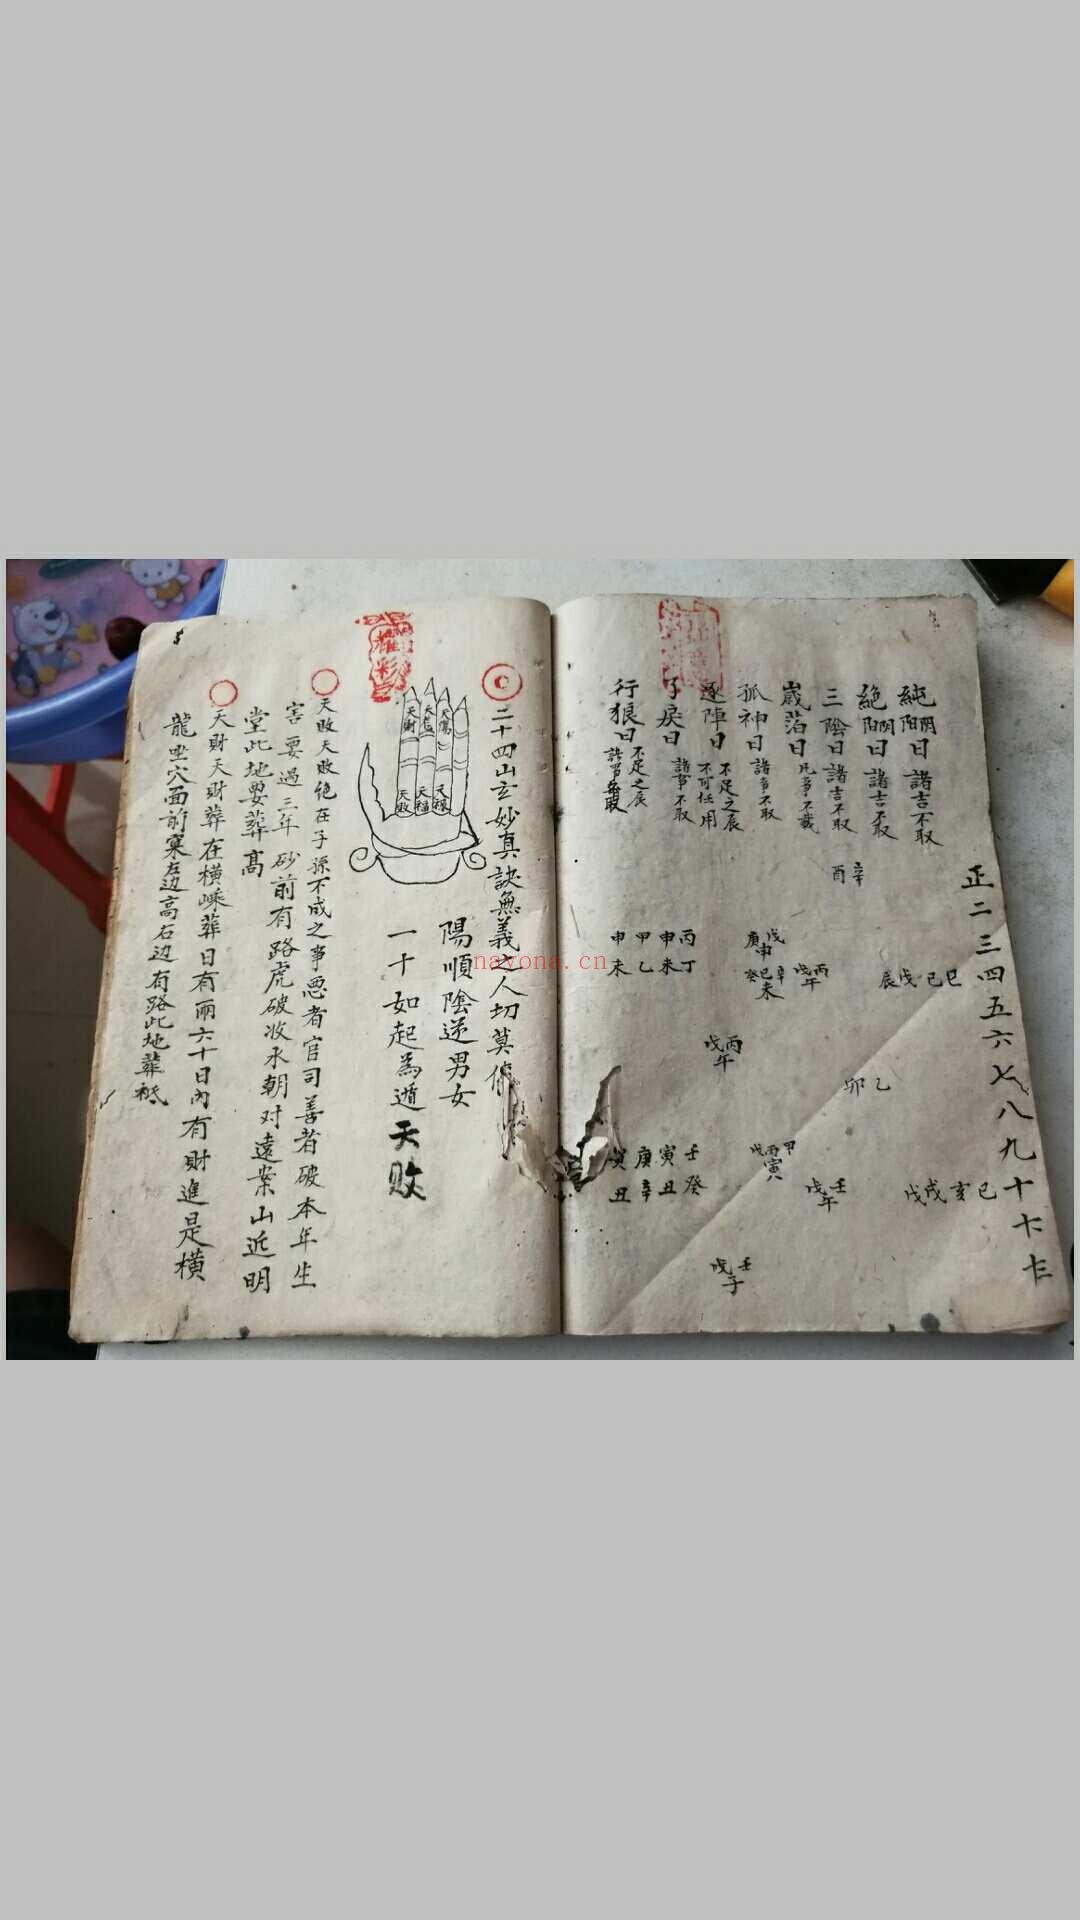 正二三四五六七八九十
純陽日 諸吉不取
絕陽日 諸吉不取
三陰日 諸吉不取
歲箔日 凡事不裁
孤神日 諸事不取
逐陣日 不足之辰
不可任用
戾日 諸事不取
行狼日 不足之辰
辛
酉
丙丁
申未
甲乙
申未
戊
庚申
丙
戊午
辰戊巳巳
丙
戊午
乙
卯
壬癸
寅丑
庚辛
寅丑
甲
丙
戊寅
壬
戊午
戊戌亥巳
壬
戊子
二十四山玄妙真訣無義之人切莫
陽順陰逆男女
一十如起為遁天敗
天財
天敗
天福
天祿
雅彩
天敗天敗絕在子孫不成之事惡者官司善者破本年生
害要過三年砂前有路虎破收水朝对遠案山近明
堂此地要葬高
天財天財葬在橫嵊葬日有兩六十日內有財進是橫
龍坐穴面前窠左边高右边有路此地葬祗
nayona.cn